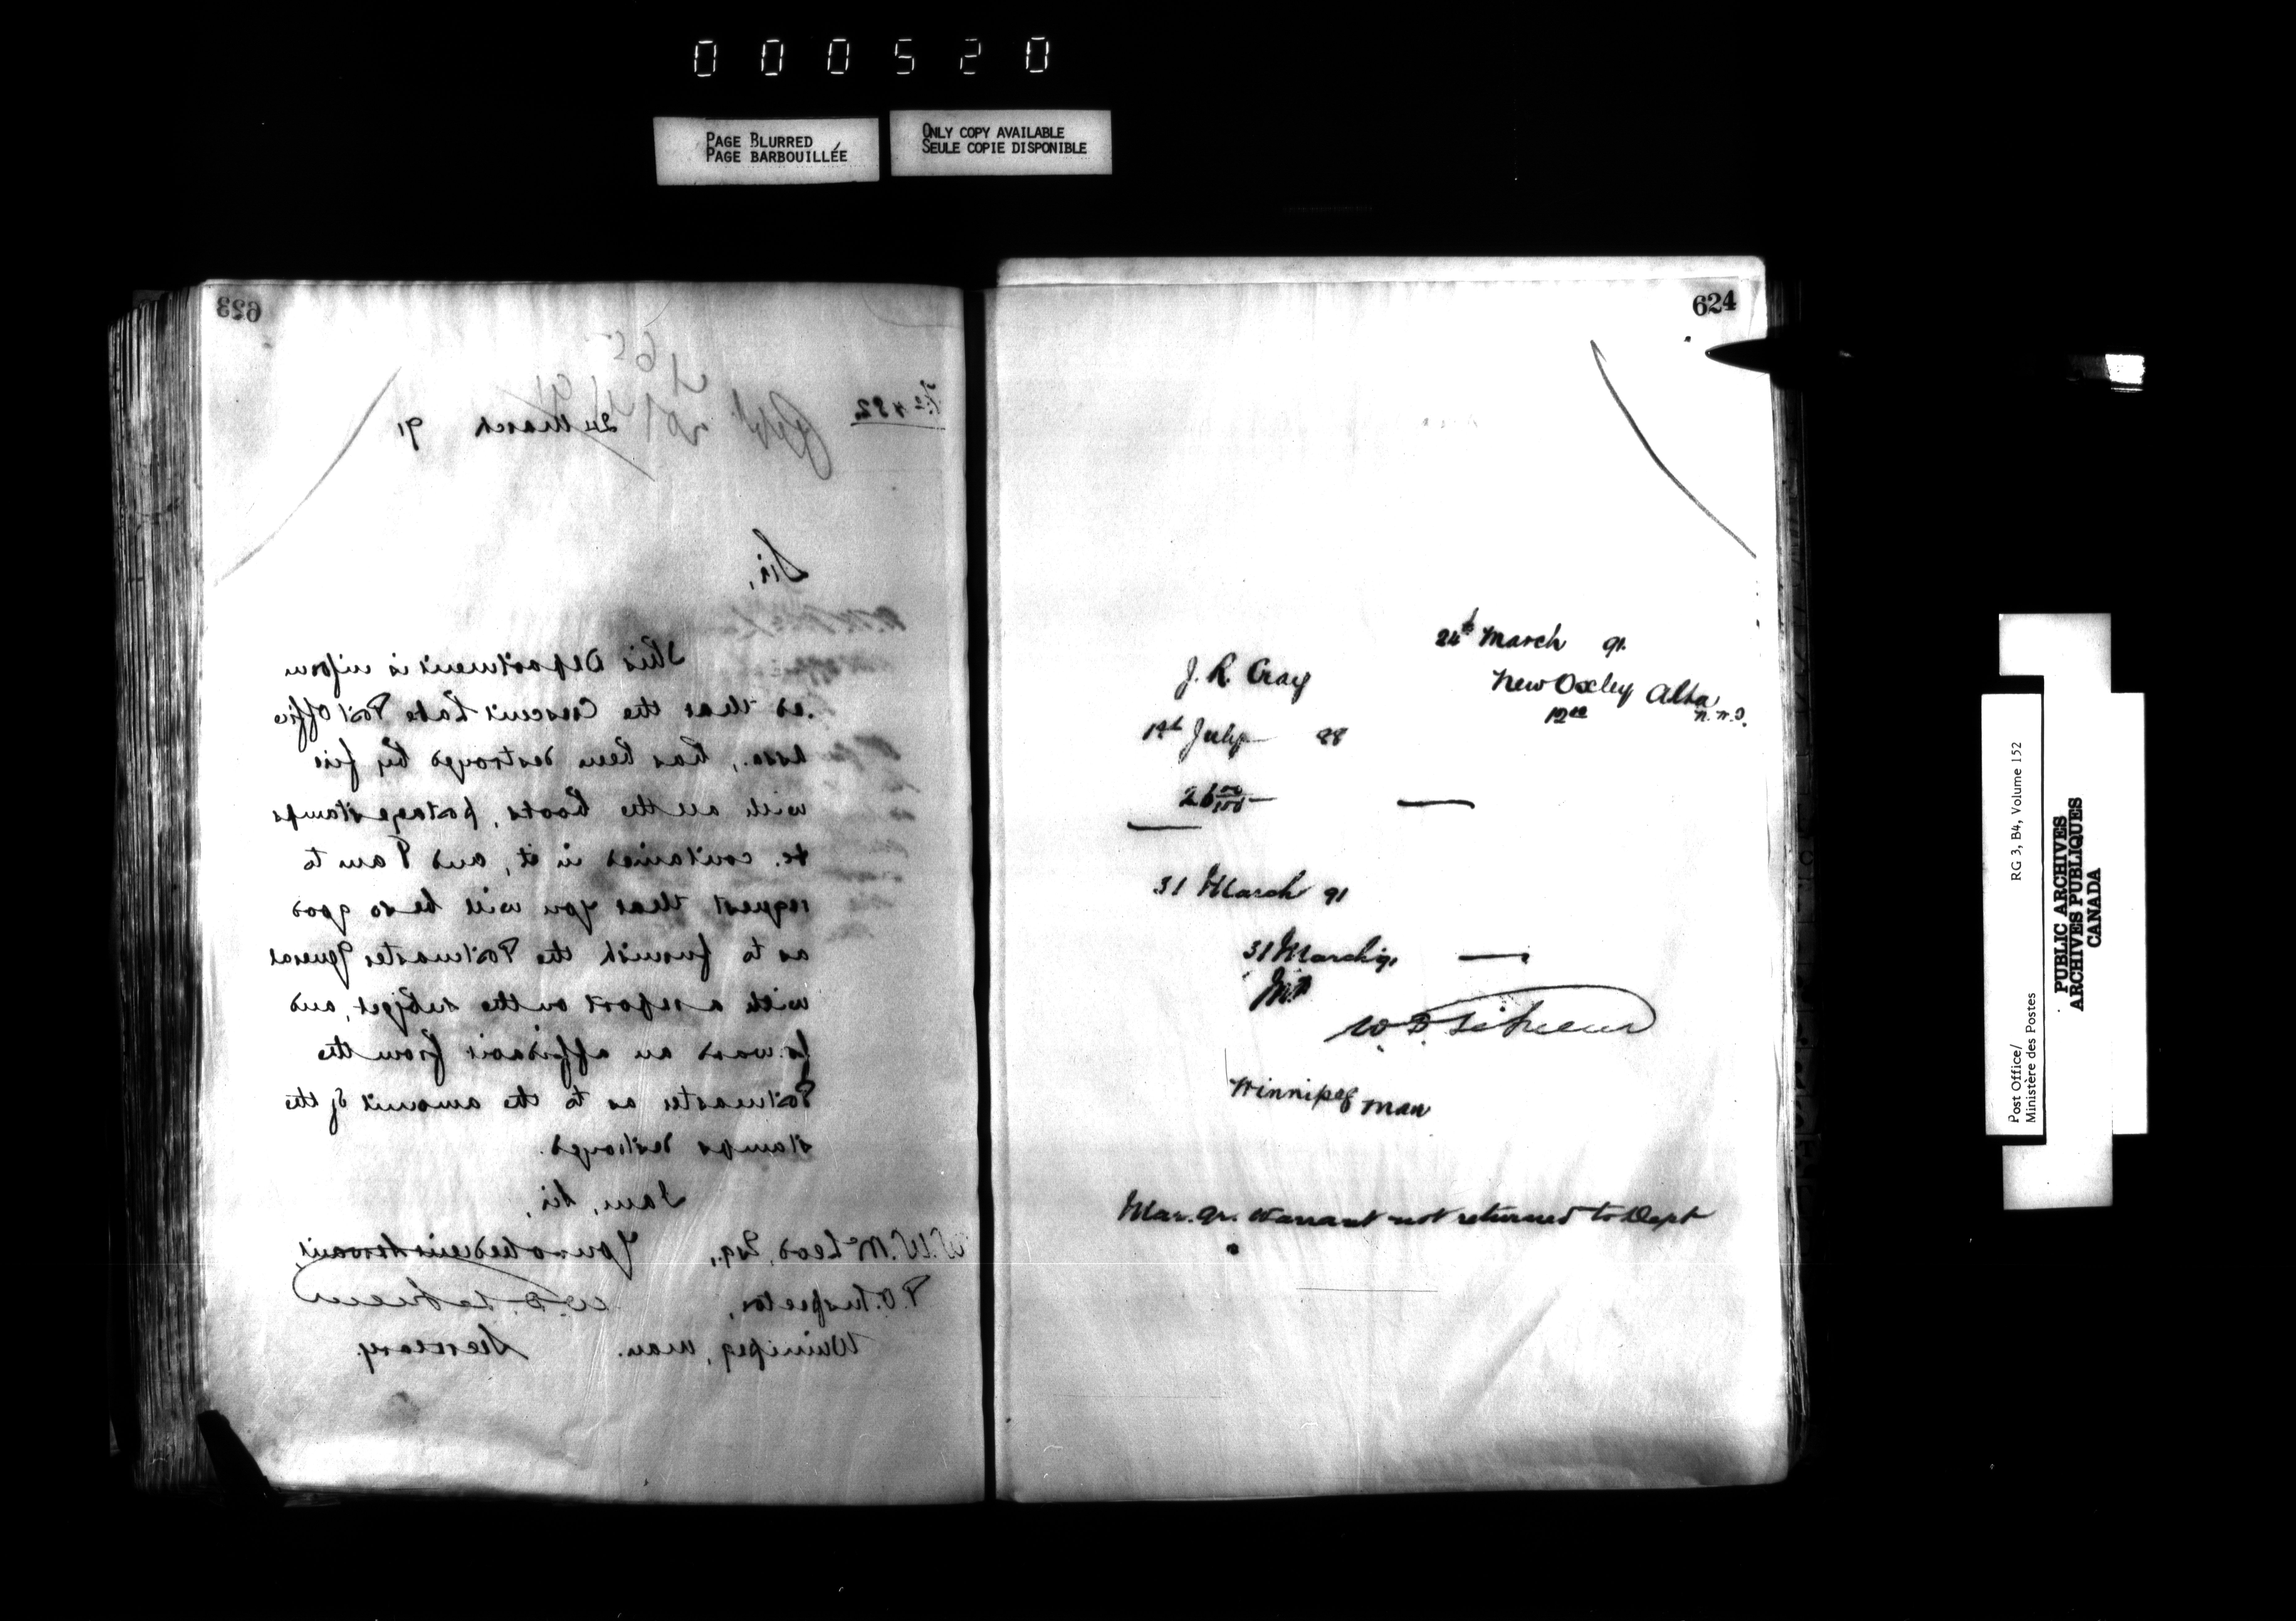 000520
PAGE BLURRED
PAGE BARBOUILLÉE
ONLY COPY AVAILABLE
SEULE COPIE DISPONIBLE
623
No 482
24 March 91
Sir,
This Department is inform
ed that the Crescent Lake Post Office
Assa., has been destroyed by fire
with all the books, postage stamps
&c. contained in it, and I am to
request that you will be so good
as to furnish the Postmaster General
with a report on the subject, and,
forward an affidavit from the
Postmaster as to the amount of the
stamps destroyed.
I am, Sir,
Your obedient Servant,
W. W. McLeod, Esq.,
P.O. Inspector,
Winnipeg, Man.
Secretary.
624
24th March 91.
New Oxley Alta
N.W.T.
J. R. Cray
1st July 88
12 00
26 00/100
31 March 91
31 March 91
Winnipeg Man
Mar. qr. Warrant not returned to Dept
Post Office/
Ministère des Postes
RG 3, B4, Volume 152
PUBLIC ARCHIVES
ARCHIVES PUBLIQUES
CANADA